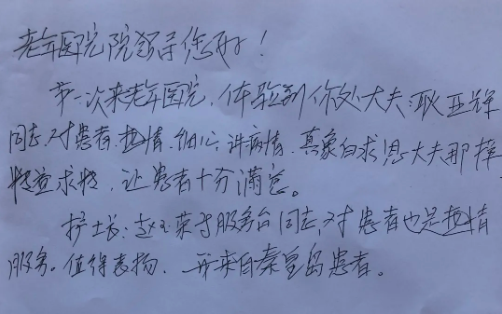 老年医院院领导您好！
第一次来老年医院，体验到你处大夫：耿亚辉
同志，对患者热情、细心、讲病情、真象白求恩大夫那样
精益求精，让患者十分满意。
护士长：赵玉荣于服务台同志，对患者也是热情
服务。值得表扬。 来自秦皇岛患者。